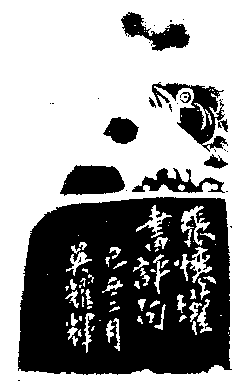 張懷瓘
書評句
己丑三月
吳耀輝